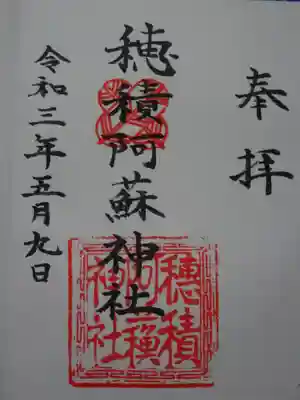 奉拝
穂積阿蘇神社
令和三年五月九日
穂積
阿蘓
神社